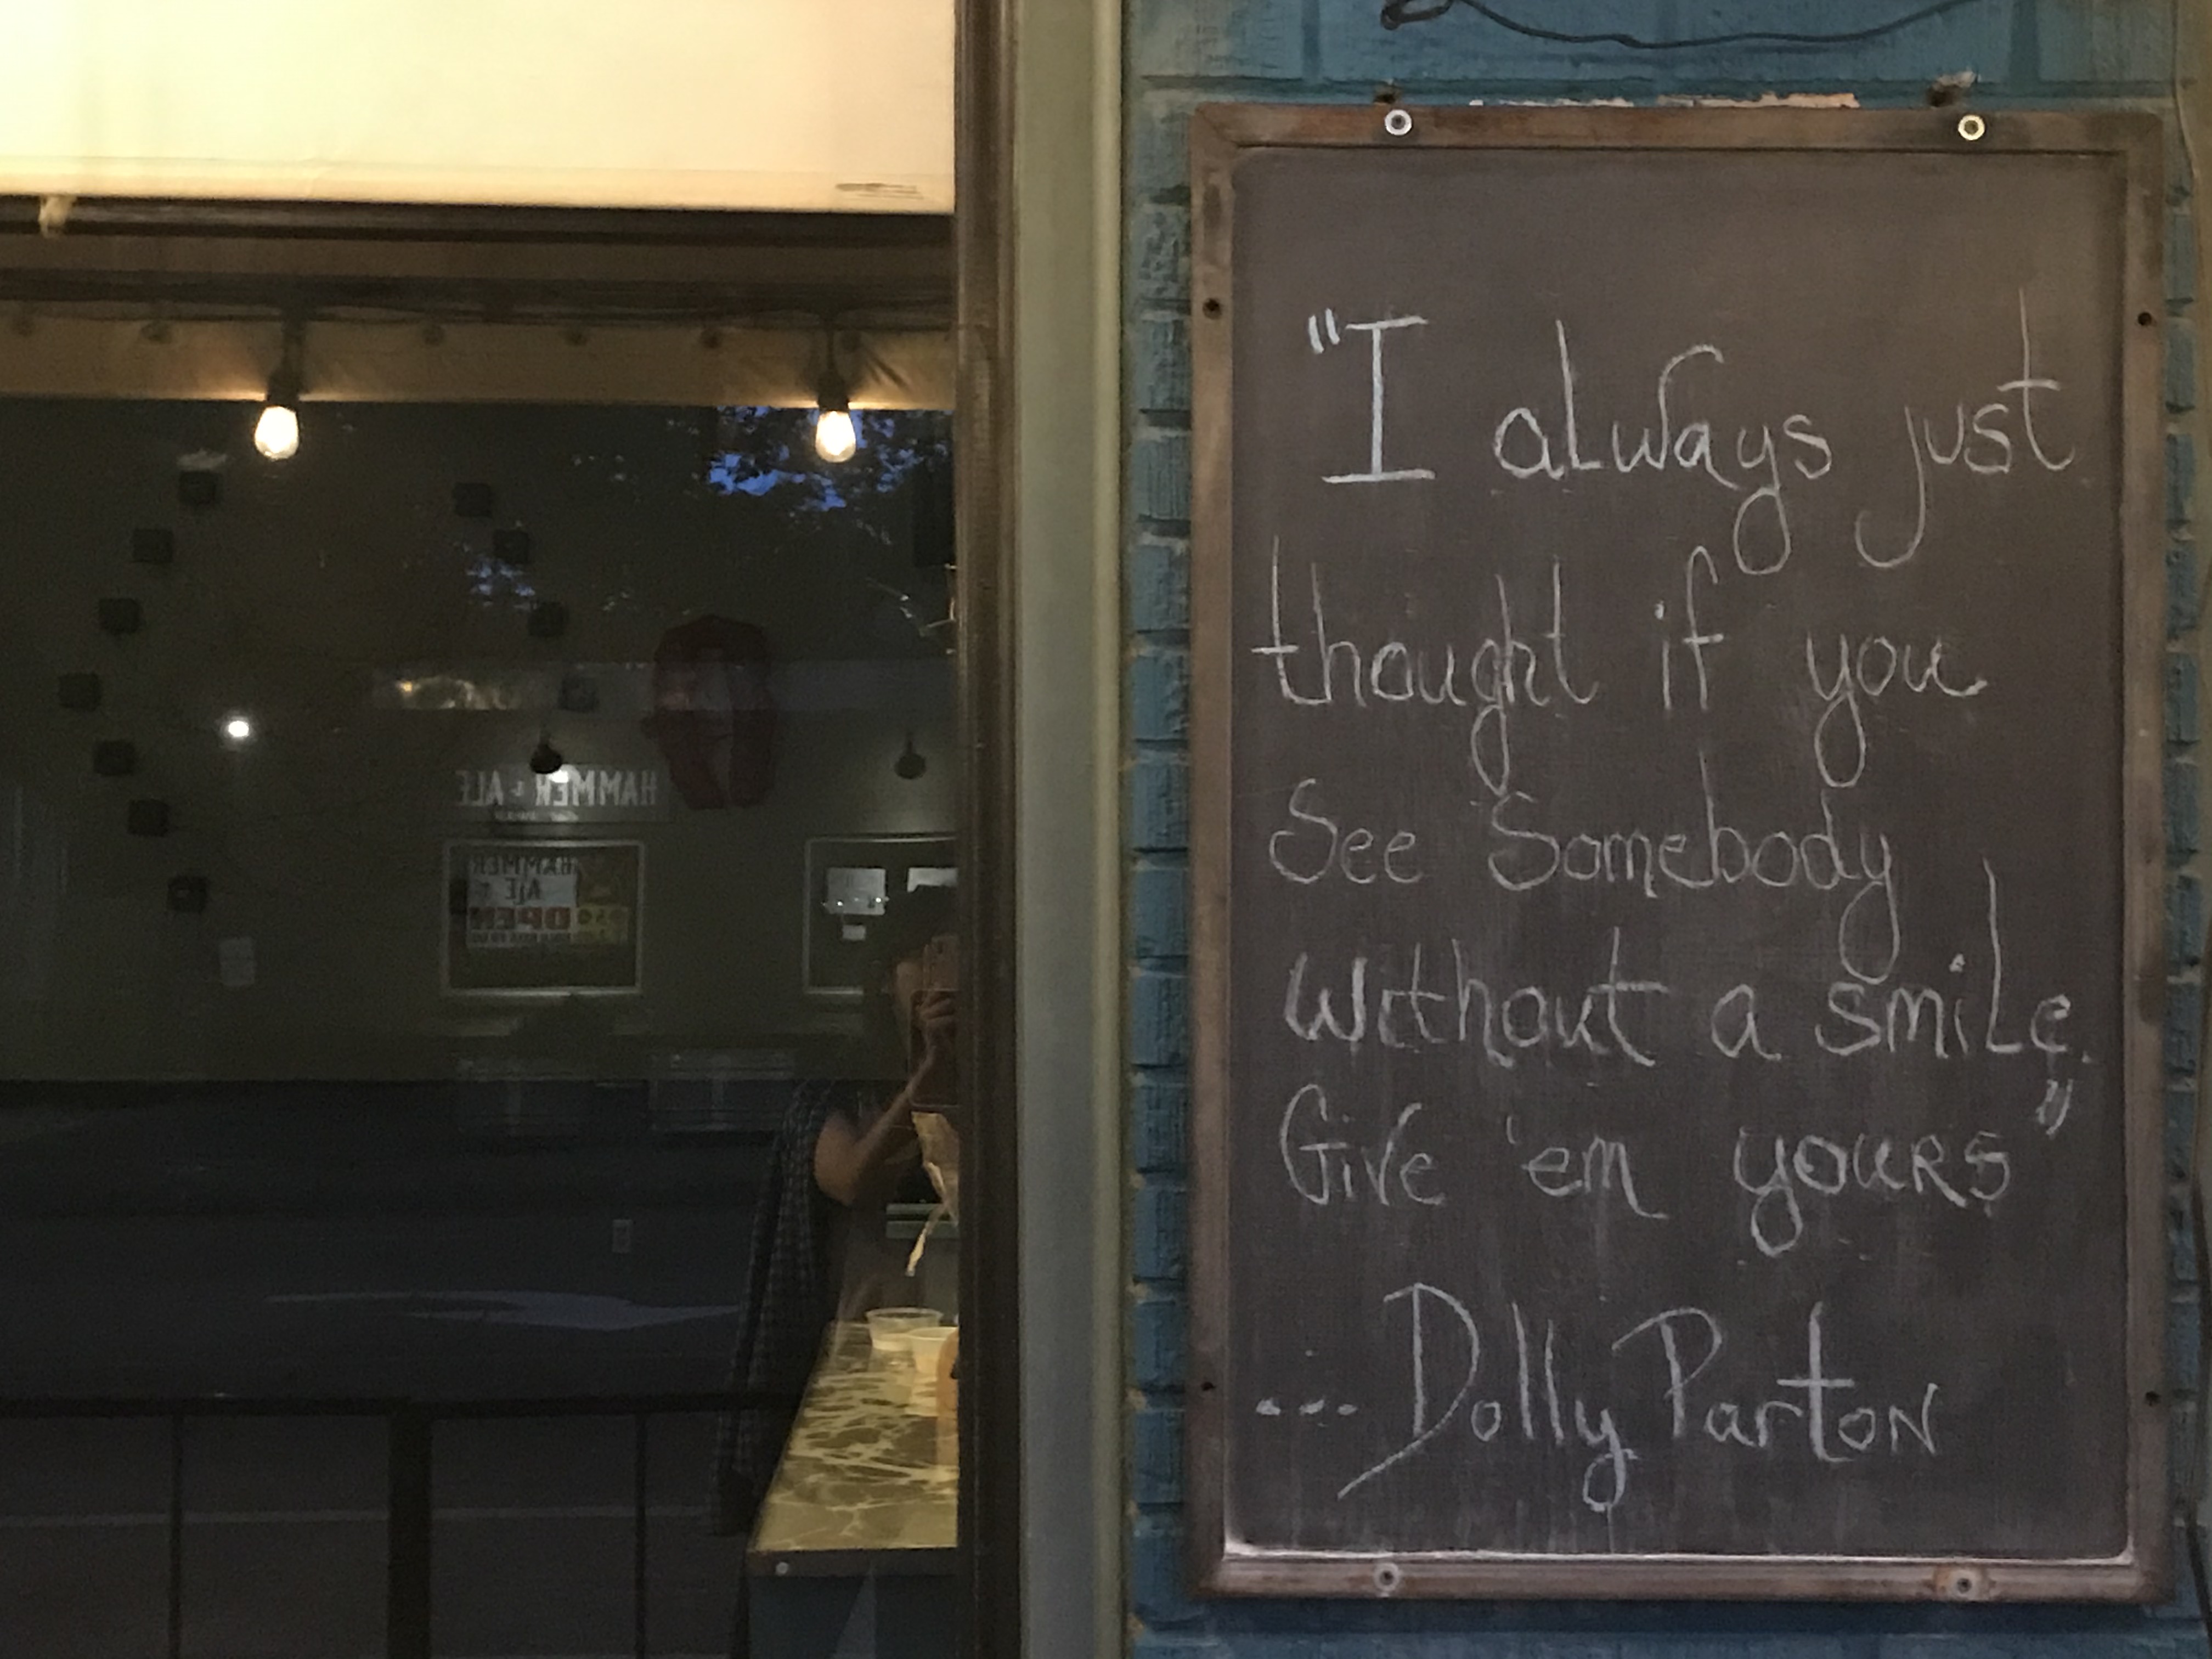 HAMMER & ALE
HAMMER
& ALE
OPEN
"I always just
thought if you
See Somebody
without a smile.
Give 'em yours"
... Dolly Parton